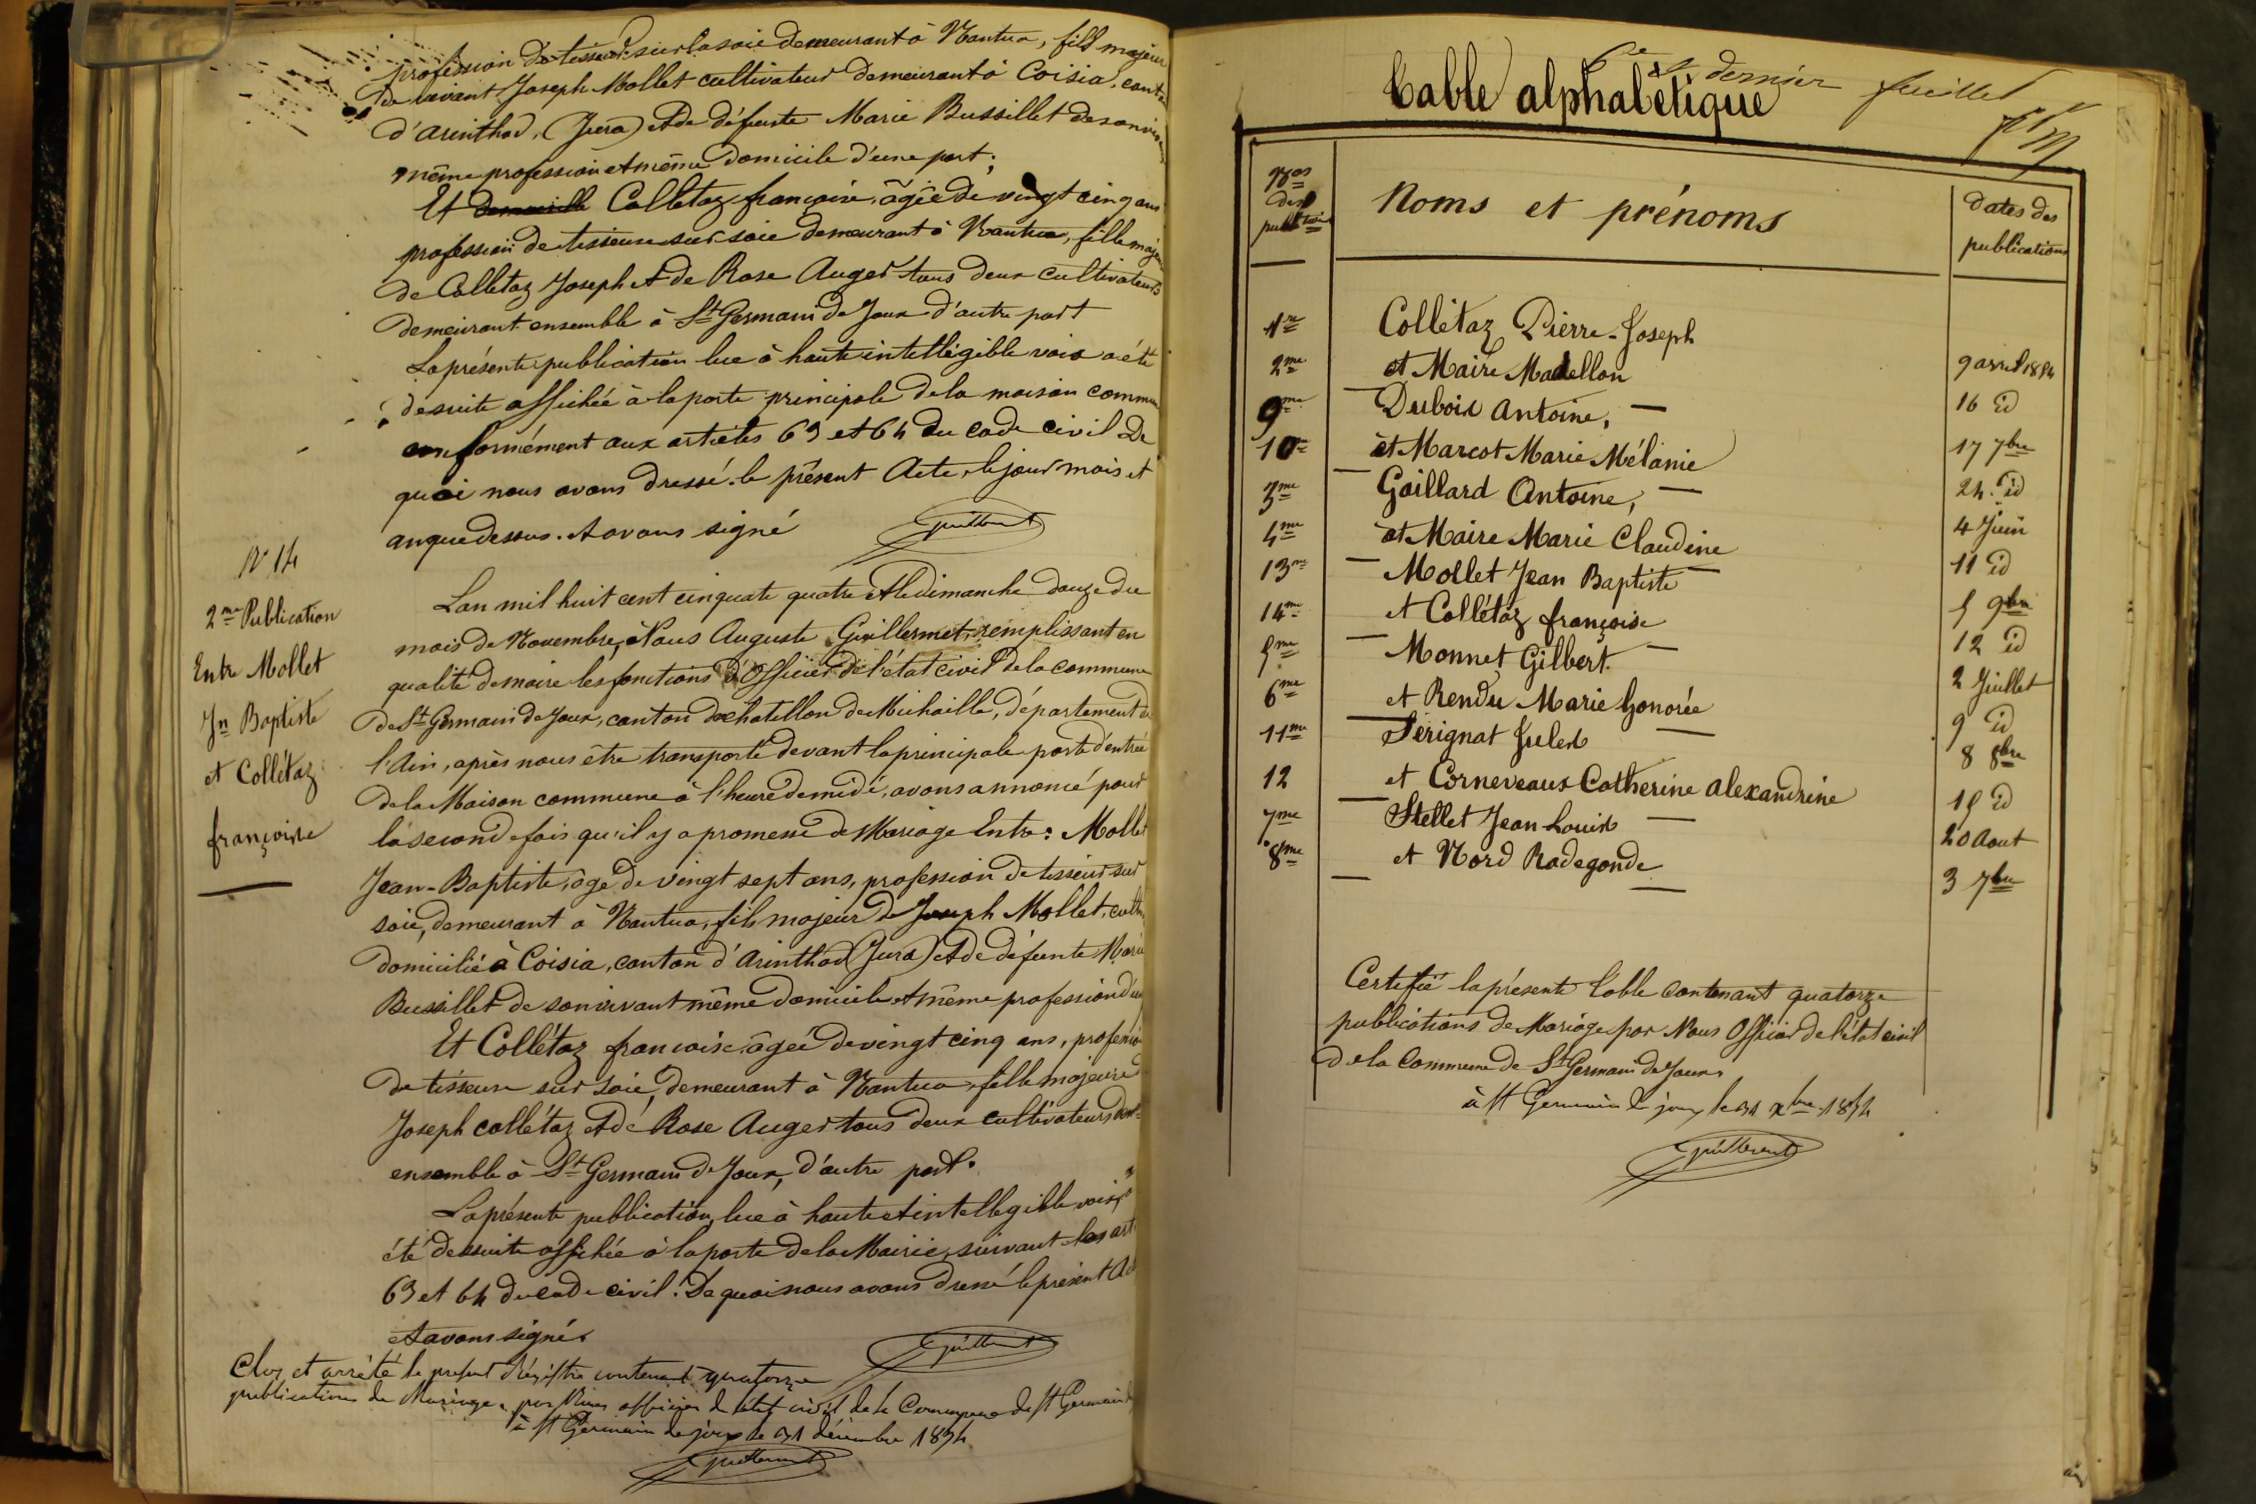 profession de tisseur sur la soie demeurant à Nantua, fils majeur
de vivant Joseph Mollet cultivateur demeurant à Coisia, canton
d'arinthod, (Jura) et de défunte Marie Bussillet de son vivant
même profession et même domicile d'une part;
Et demoiselle Collétaz françoise, âgée de vingt cinq ans
profession de tisseuse sur soie demeurant à Nantua, fille majeure
de Collétaz Joseph et de Rose Auger tous deux cultivateurs
demeurant ensemble à St Germain de Joux d'autre part
La présente publication lue à haute intelligible voix a été
de suite affichée à la porte principale de la maison commune
conformément aux articles 63 et 64 du code civil De
quoi nous avons dressé le présent Acte, le jour mois et
an que dessus. et avons signé
Guillermet
N° 14
2me Publication
Entre Mollet
Jn Baptiste
et Collétaz
françoise
L'an mil huit cent cinquate quatre et le dimanche douze du
mois de Novembre, Nous Auguste Guillermet, remplissant en
qualité de maire les fonctions d'Officier de l'état civil de la commune
de St Germain de Joux, canton de chatillon de Michaille, département de
l'Ain, après nous être transporté devant la principale porte d'entrée
de la Maison commune à l'heure de midi, avons annoncé pour
la seconde fois qu'il y a promesse de Mariage Entre: Mollet
Jean-Baptiste, âgé de vingt sept ans, profession de tisseur sur
soie, demeurant à Nantua, fils majeur de Joseph Mollet, cult.
domicilié à Coisia, canton d'arinthod (Jura) et de défunte Marie
Bussillet de son vivant même domicile et même profession d'une
Et Collétaz francoise, âgée de vingt cinq ans, profession
de tisseuse sur soie, demeurant à Nantua, fille majeure
Joseph collétaz et de Rose Auger tous deux cultivateurs dem
ensemble à St Germain de Joux, d'autre part.
La présente publication, lue à haute et intellegible voix, a
été de suite affichée à la porte de la Mairie, suivant les art
63 et 64 du code civil. De quoi nous avons dressé le présent Acte
et avons signé
Guillermet
Clos et arrêté le présent Régistre contenant quatorze
publications de Mariage, par Nous officier de l'état civil de la Commune de St Germain de
à St Germain de joux le 31 décembre 1854
Guillermet
6e et dernier feuillet
Table alphabétique
Nos des publications
Noms et prénoms
Dates des publications
1re Collétaz Pierre-Joseph 9 avril 1854
2me et Maire Madellon 16 id
9me Dubois Antoine, 17 7bre
10me et Marcot Marie Mélanie 24 id
3me Gaillard Antoine, 4 Juin
4me et Maire Marie Claudine 11 id
13me Mollet Jean Baptiste 5 9bre
14me et Collétaz françoise 12 id
5me Monnet Gilbert 2 Juillet
6me et Rendu Marie honorée 9 id
11me Sérignat Jules 8 8bre
12 et Corneveaux Catherine alexandrine 15 id
7me Stellet Jean Louis 20 Aout
8me et Nord Radegonde 3 7bre
Certifié la présente Table contenant quatorze
publications de Mariage par Nous Officier de l'état civil
de la Commune de St Germain de Joux,
à St Germain de joux le 31 xbre 1854
Guillermet